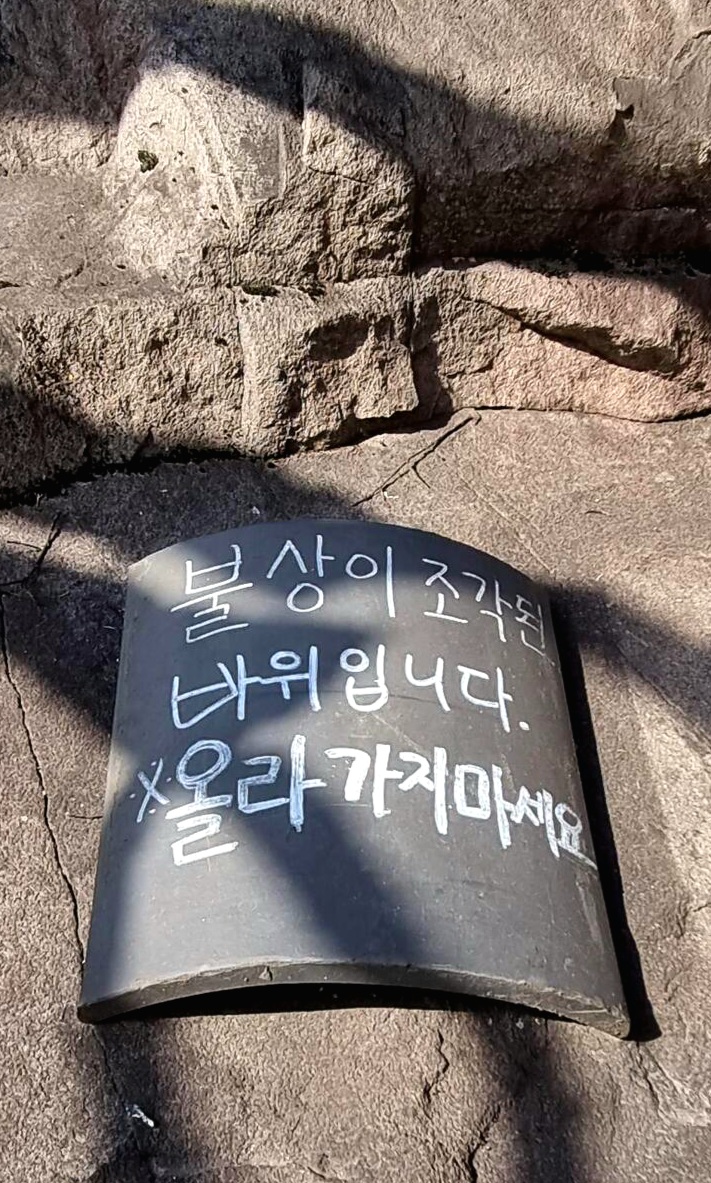 불상이 조각된
바위입니다.
X올라 가지마세요